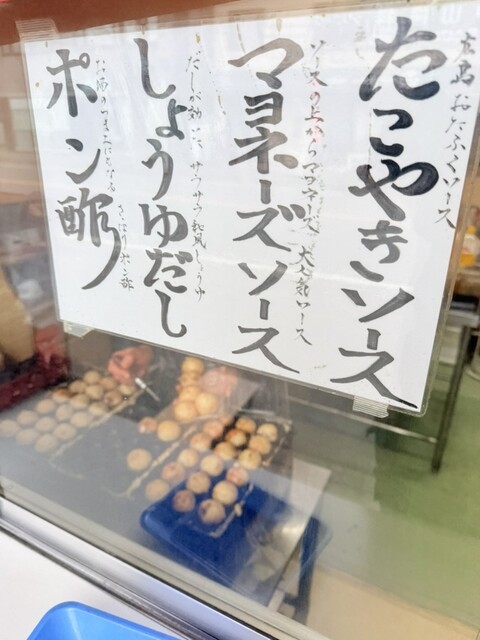 広島おたふくソース
たこやきソース
ソースの上からマヨネーズ 大人気ソース
マヨネーズソース
だしが効いた サラサラ和風しょうゆ
しょうゆだし
お酒のつまみにもなる さっぱりポン酢
ポン酢